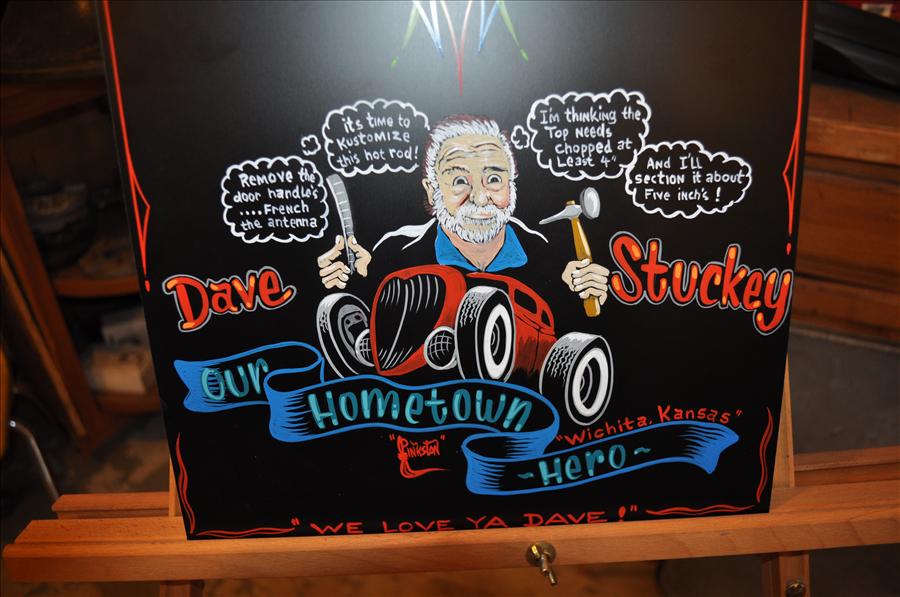 it's time to
Kustomize
this hot rod!
I'm thinking the
Top needs
chopped at
Least 4"
Remove the
door handles
....French
the antenna
And I'll
section it about
Five inch's!
Dave
Stuckey
Our
Hometown
"Wichita, Kansas"
~Hero~
"Pinkston"
"WE LOVE YA DAVE!"